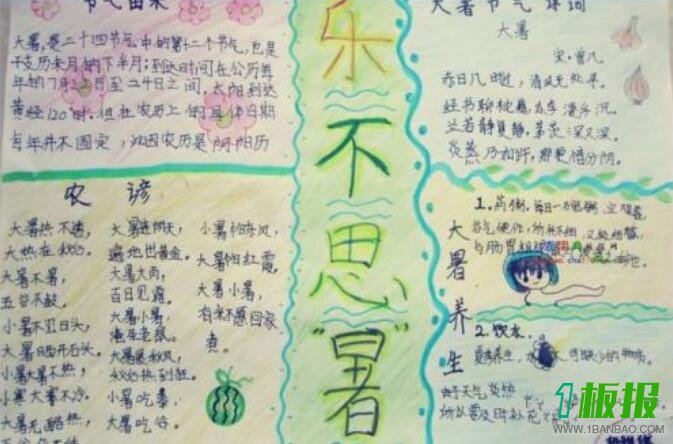 节气由来
大暑,是二十四节气中的第十二个节气,也是
干支历未月的下半月;到达时间在公历每
年的7月22日至24日之间,太阳到达
黄经120°时。但在农历上的具体日期
每年并不固定,
农谚
大暑热不透,
大热在秋后。
大暑不暑,
五谷不鼓。
小暑不见日头,
大暑晒开石头。
小暑大暑不热,
小寒大寒不冷。
大暑无酷热,
大暑连阴天,
遍地出黄金。
大暑大雨,
百日见霜。
大暑小暑,
淹死老鼠。
大暑展秋风,
秋后热到狂。
小暑吃黍,
大暑吃谷。
小暑怕东风,
大暑怕红霞。
大暑小暑,
有米不愿回家
煮。
乐不思"暑"
大暑节气诗词
大暑
宋·曾几
赤日几时过,清风无处寻。
经书聊枕籍,瓜李漫浮沉。
兰若静复静,茅茨深又深。
炎蒸乃如许,那更惜分阴。
大暑养生
1.药粥。
2.饮水。
由于天气炎热
所以要及时补充
1板报
WWW.1BANBAO.COM